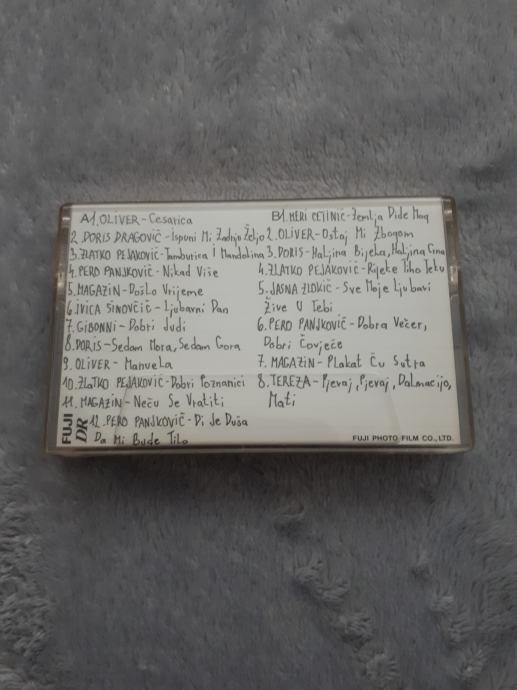 A1. OLIVER - Cesarica
2. DORIS DRAGOVIĆ - Ispuni Mi Zadnju Želju
3. ZLATKO PEJAKOVIĆ - Tamburica I Mandolina
4. PERO PANJKOVIĆ - Nikad Više
5. MAGAZIN - Došlo Vrijeme
6. IVICA SINOVČIĆ - Ljubavni Dan
7. GIBONNI - Dobri Judi
8. DORIS - Sedam Mora, Sedam Gora
9. OLIVER - Manuela
10. ZLATKO PEJAKOVIĆ - Dobri Poznanici
11. MAGAZIN - Neću Se Vratiti
12. PERO PANJKOVIĆ - Di Je Duša
Da Mi Bude Tilo
B1. MERI CETINIĆ - Zemlja Dide Mog
2. OLIVER - Ostaj Mi Zbogom
3. DORIS - Haljina Bijela, Haljina Crna
4. ZLATKO PEJAKOVIĆ - Rijeke Tiho Teku
5. JASNA ZLOKIĆ - Sve Moje Ljubavi
Žive U Tebi
6. PERO PANJKOVIĆ - Dobra Večer,
Dobri Čovječe
7. MAGAZIN - Plakat Ću Sutra
8. TEREZA - Pjevaj, Pjevaj, Dalmacijo,
Mati
FUJI
DR
FUJI PHOTO FILM CO., LTD.